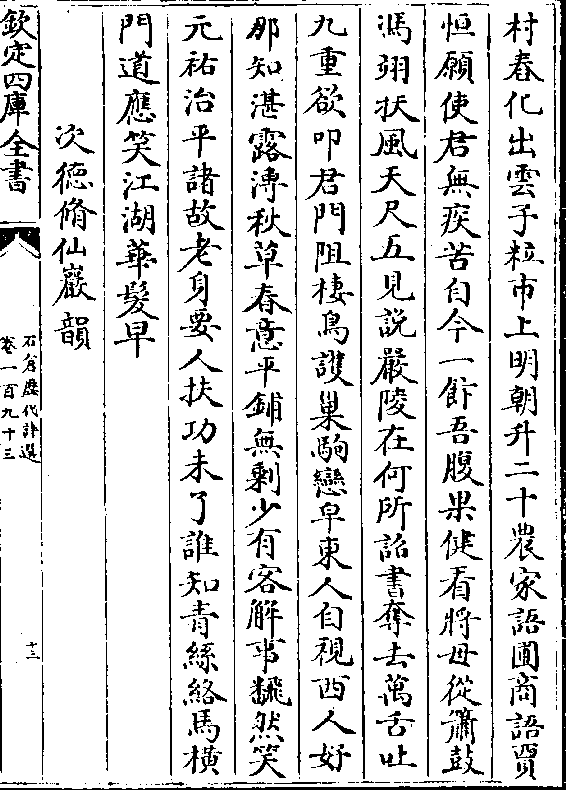 村舂化出雲子粒市上明朝升二十農家語圃商語賈
恒願使君無疾苦自今一飰吾腹果健看將母從簫鼓
馮翊扶風天尺五見説嚴陵在何所詔書奪去萬舌吐
九重欲叩君門阻棲鳥護巢駒戀皁東人自視西人好
那知湛露溥秋草春意平鋪無剩少有客解事飜然笑
元祐治平諸故老身要人扶功未了誰知青絲絡馬橫
門道應笑江湖華髮早
次德脩仙巖韻
欽定四庫全書
石倉歷代詩選
卷一百九十三
十三